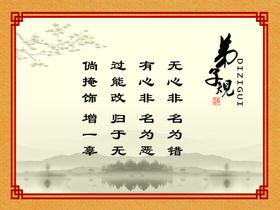 弟子规
DIZIGUI
无心非 名为错
有心非 名为恶
过能改 归于无
倘掩饰 增一辜